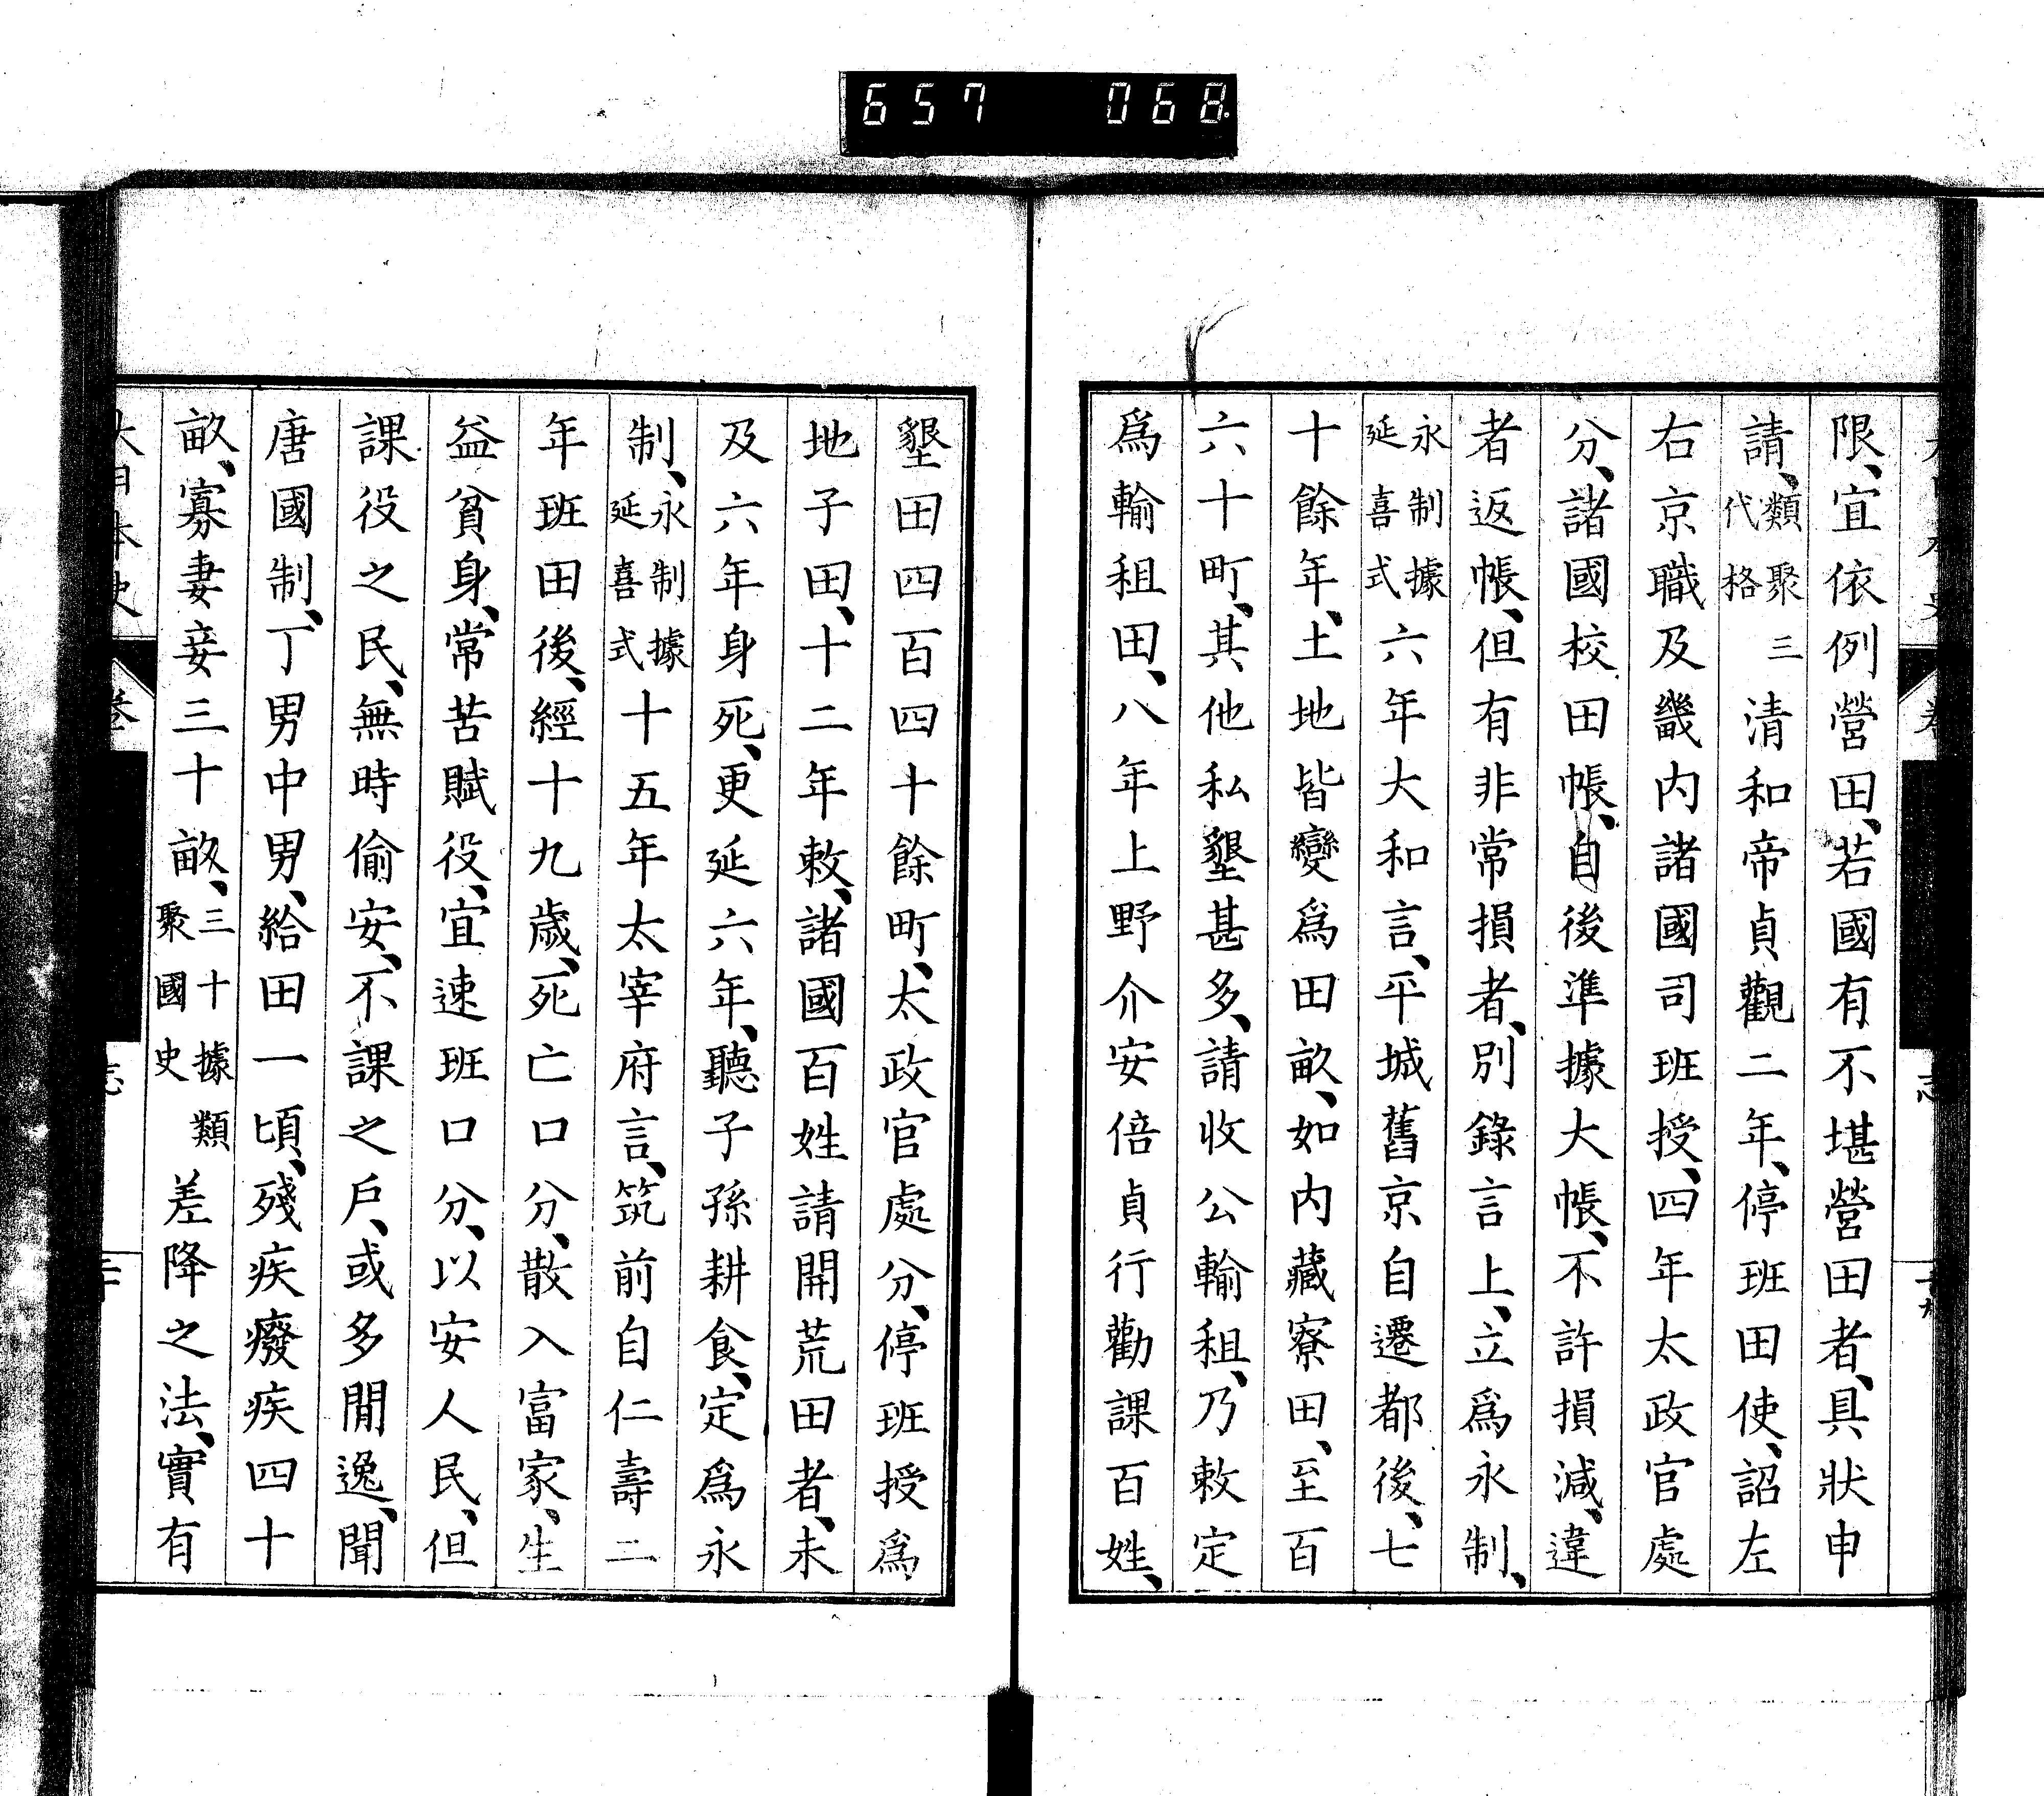 657 068
限、宜依例營田、若國有不堪營田者、具狀申
請、類聚三代格清和帝貞觀二年、停班田使、詔左
右京職及畿内諸國司班授、四年太政官處
分、諸國校田帳、自後準據大帳、不許損減、違
者返帳、但有非常損者、別錄言上、立爲永制、
永制據延喜式六年大和言、平城舊京自遷都後、七
十餘年、土地皆變爲田畝、如内藏寮田、至百
六十町、其他私墾甚多、請收公輸租、乃敕定
爲輸租田、八年上野介安倍貞行勸課百姓、
墾田四百四十餘町、太政官處分、停班授爲
地子田、十二年敕、諸國百姓請開荒田者、未
及六年身死、更延六年、聽子孫耕食、定爲永
制、永制據延喜式十五年太宰府言、筑前自仁壽二
年班田後、經十九歲、死亡口分、散入富家、生
益貧身、常苦賦役、宜速班口分、以安人民、但
課役之民、無時偷安、不課之戶、或多閒逸、聞
唐國制、丁男中男、給田一頃、殘疾癈疾四十
畝、寡妻妾三十畝、三十據類聚國史差降之法、實有
大日本史
卷
志
二十